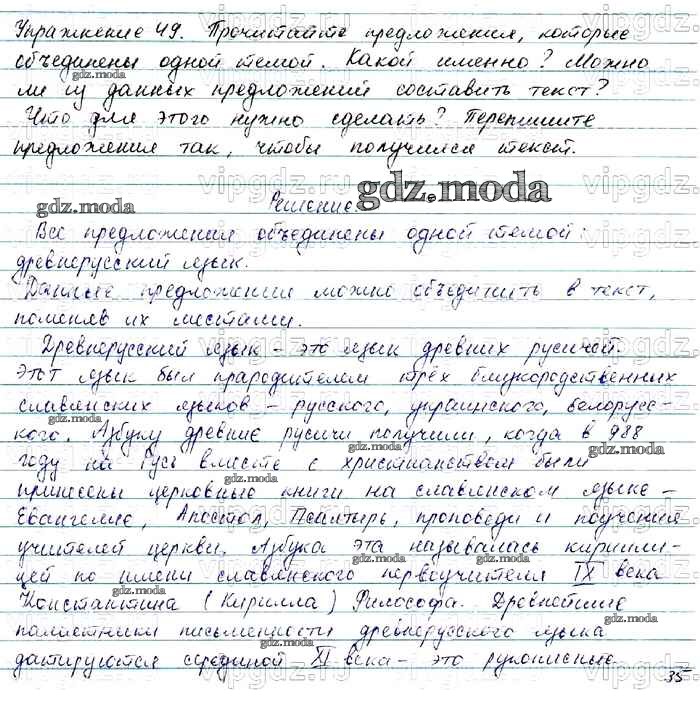 Упражнение 49. Прочитайте предложения, которые
объединены одной темой. Какой именно? Можно
ли из данных предложений составить текст?
Что для этого нужно сделать? Перепишите
предложения так, чтобы получился текст.
Решение.
Все предложения объединены одной темой:
древнерусский язык.
Данные предложения можно объединить в текст,
поменяв их местами.
Древнерусский язык – это язык древних русичей.
Этот язык был прародителем трёх близкородственных
славянских языков – русского, украинского, белорусс-
кого. Азбуку древние русичи получили, когда в 988
году на Русь вместе с христианством были
принесены церковные книги на славянском языке –
Евангелие, Апостол, Псалтырь, проповеди и поучения
учителей церкви. Азбука эта называлась кирилли-
цей по имени славянского первоучителя IX века
Константина (Кирилла) Философа. Древнейшие
памятники письменности древнерусского языка
датируются серединой XI века – это рукописные
35